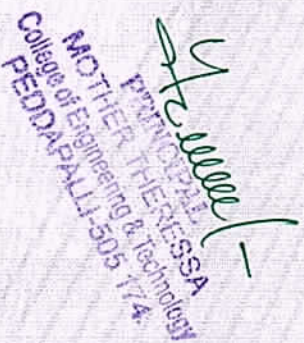 PRINCIPAL
MOTHER THERESSA
College of Engineering & Technology
PEDDAPALLI-505 174.